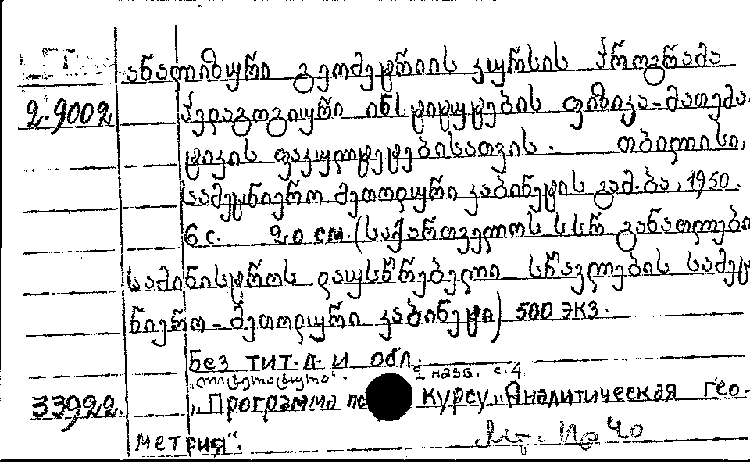 ანალიზური გეომეტრიის კურსის პროგრამა
2.9002 პედაგოგიური ინსტიტუტების ფიზიკა-მათემა-
ტიკის ფაკულტეტებისათვის. თბილისი,
სამეცნიერო მეთოდური კაბინეტის გამ-ბა, 1950.
6 с. 20 см. (საქართველოს სსრ განათლები
სამინისტროს დაუსწრებელი სწავლების სამეც
ნიერო-მეთოდური კაბინეტი) 500 экз.
Без тит. л. и обл.
с. 4.
33922. "Программа по курсу "Аналитическая гео-
метрия".
№ 40